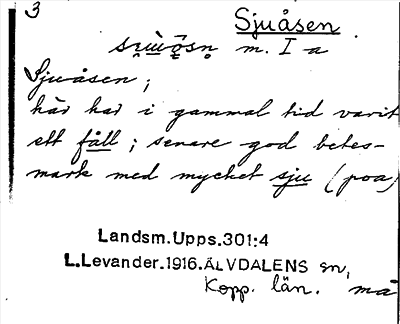 3
Sjuåsen.
m. I a
Sjuåsen;
här har i gammal tid varit
ett fåll; senare god betes-
mark med mycket sju (poa)
Landsm.Upps.301:4
L.Levander.1916.ÄLVDALENS sn,
Kopp. län. må